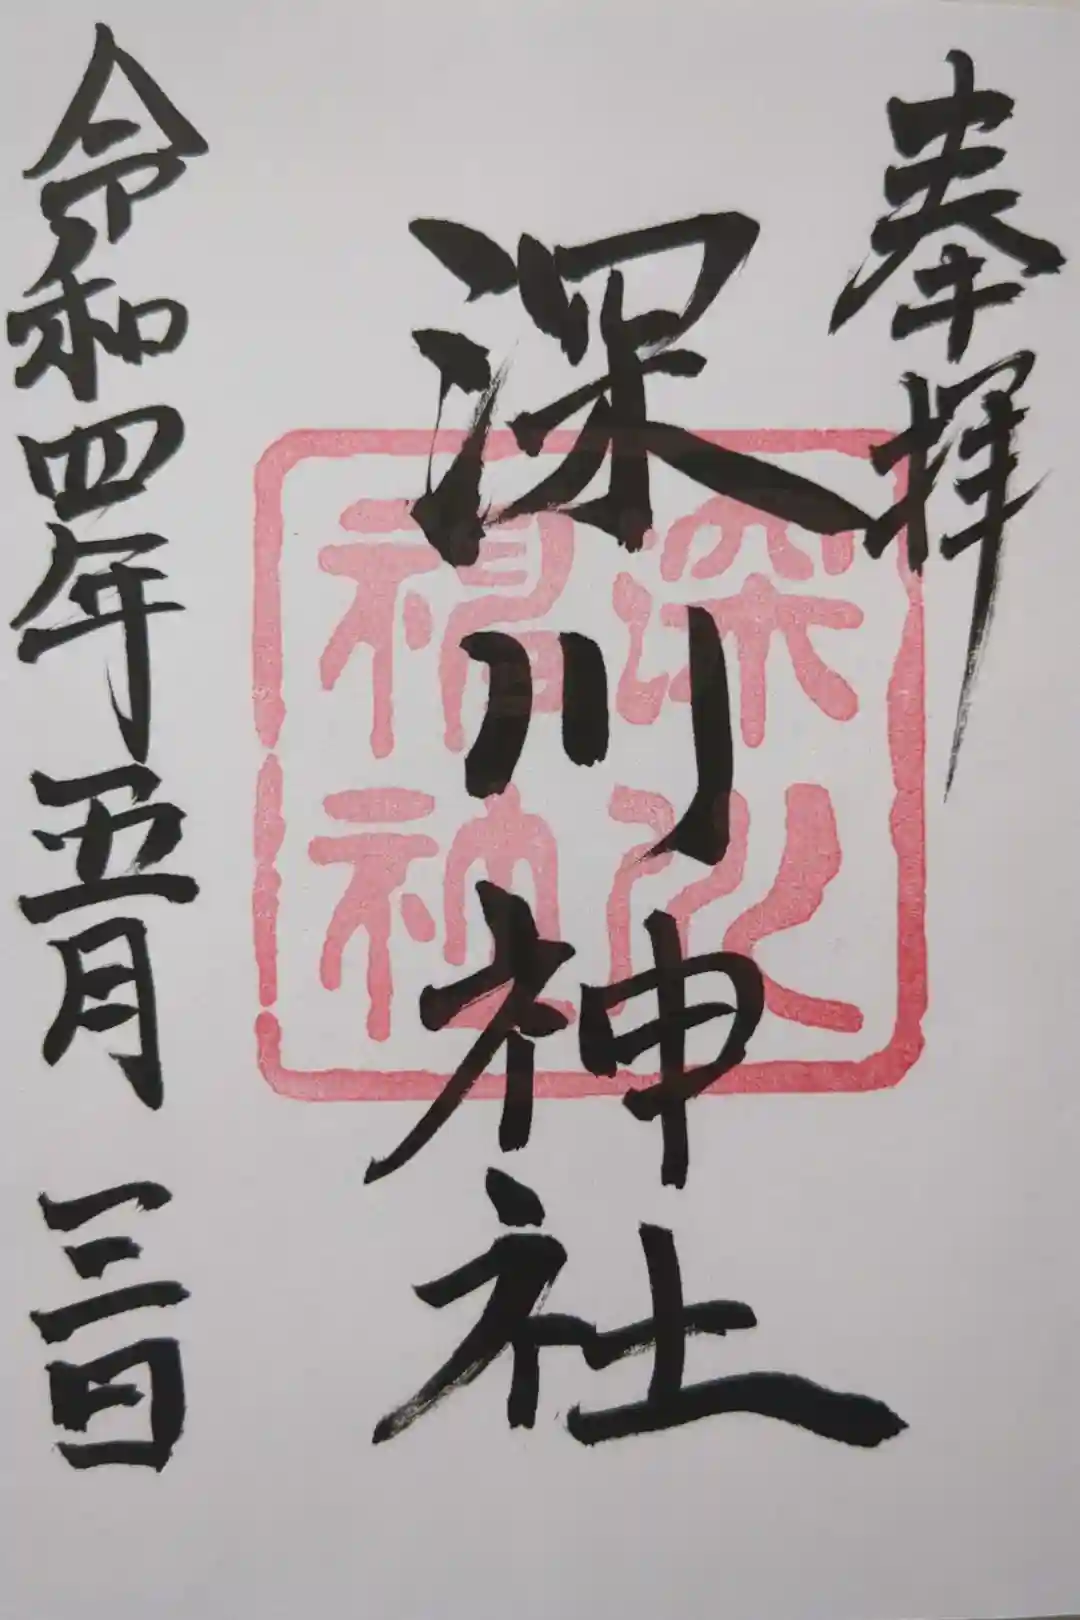 奉拝
深川神社
深川
福神
令和四年五月三日